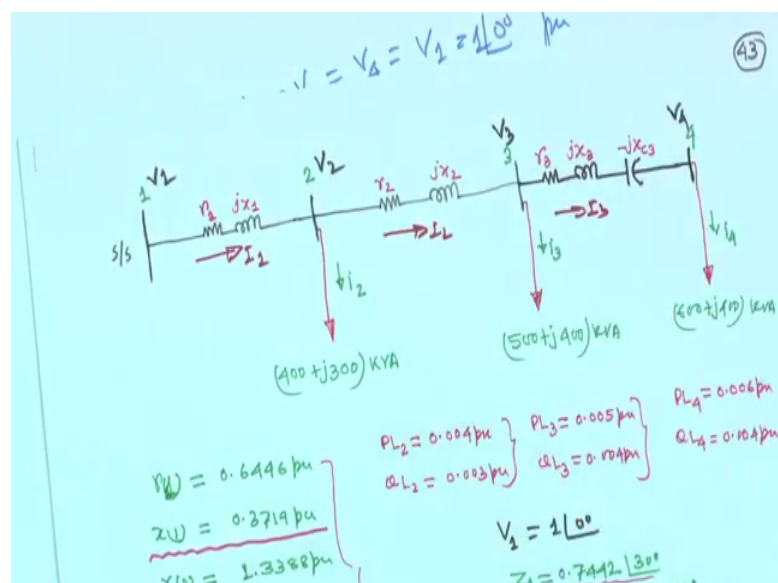 V = V4 = V1 = 1∠0° pu
43
V1 V2 V3 V4
1 2 3 4
r1 jx1 r2 jx2 r3 jx3 -jxc3
S/S
I1 I2 I3
i2 i3 i4
(400 + j300) KVA
(500 + j400) KVA
(600 + j400) KVA
PL2 = 0.004 pu
QL2 = 0.003 pu
PL3 = 0.005 pu
QL3 = 0.004 pu
PL4 = 0.006 pu
QL4 = 0.004 pu
r(1) = 0.6446 pu
x(1) = 0.3719 pu
1.3388 pu
V1 = 1∠0°
Z1 = 0.7442 ∠30°